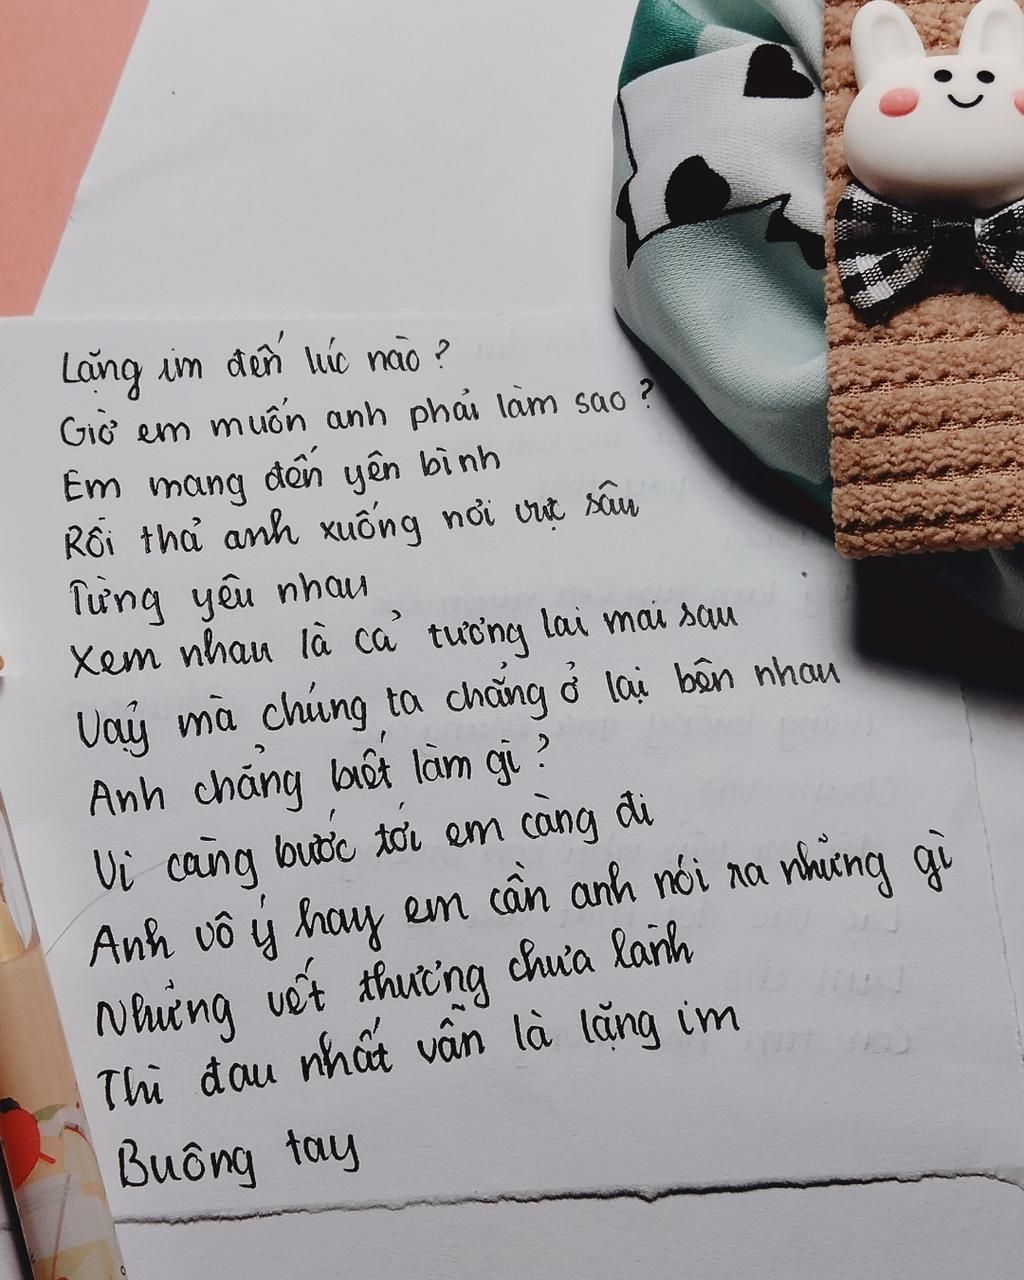 Lặng im đến lúc nào?
Giờ em muốn anh phải làm sao?
Em mang đến yên bình
Rồi thả anh xuống nơi vực sâu
Từng yêu nhau
Xem nhau là cả tương lai mai sau
Vậy mà chúng ta chẳng ở lại bên nhau
Anh chẳng biết làm gì?
Vì càng bước tới em càng đi
Anh vô ý hay em cần anh nói ra những gì
Những vết thương chưa lành
Thì đau nhất vẫn là lặng im
Buông tay